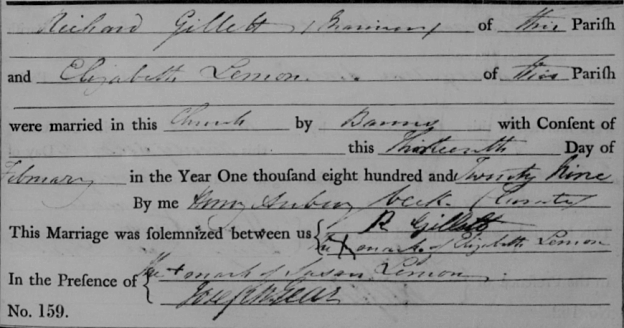 Richard Gillett of this Pariſh
and Elizabeth Lemon of this Pariſh
were married in this Church by Banns with Conſent of
this Thirteenth Day of
February in the Year One thouſand eight hundred and Twenty Nine
By me Henry Aubery Beck (Curate)
This Marriage was ſolemnized between us { R Gillett
The X mark of Elizabeth Lemon
In the Preſence of { The + mark of Susan Lemon
Joseph Dear
No. 159.